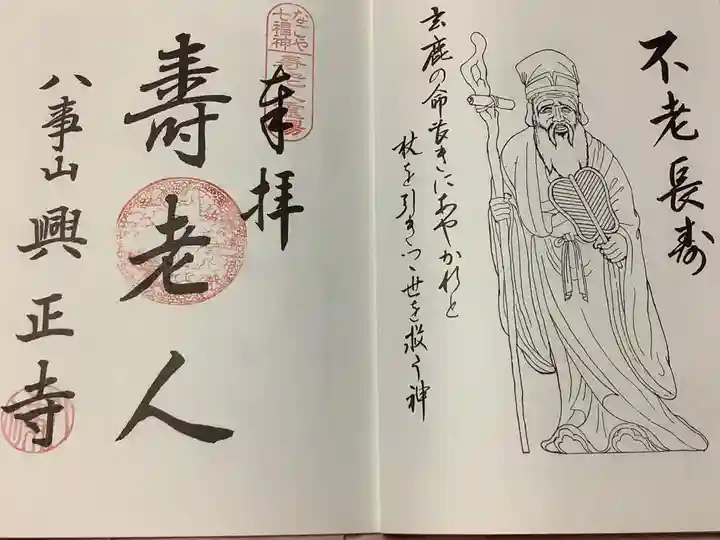 不老長寿
玄鹿の命長きにあやかれと
杖を引きつゝ世を救う神
奉拝
なごや
七福神
寿老人霊場
壽老人
八事山興正寺